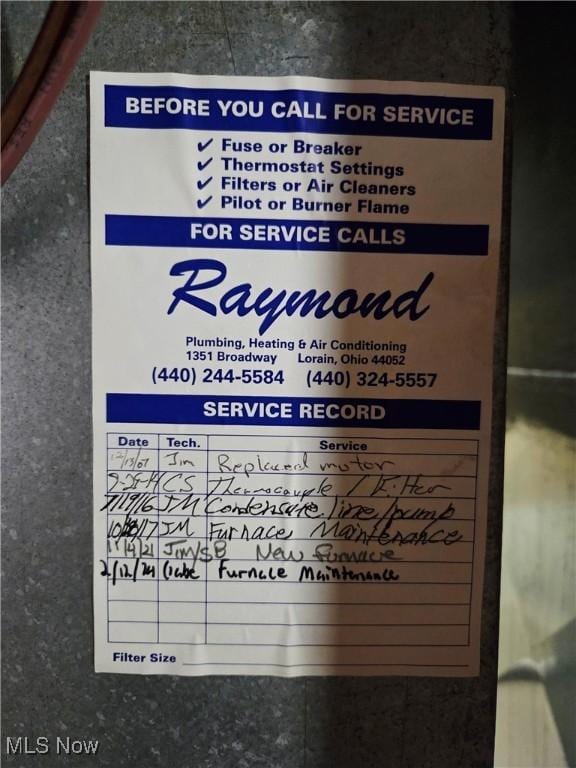 BEFORE YOU CALL FOR SERVICE
✓ Fuse or Breaker
✓ Thermostat Settings
✓ Filters or Air Cleaners
✓ Pilot or Burner Flame
FOR SERVICE CALLS
Raymond
Plumbing, Heating & Air Conditioning
1351 Broadway Lorain, Ohio 44052
(440) 244-5584 (440) 324-5557
SERVICE RECORD
Date Tech. Service
12/13/07 Jim Replaced motor
CS Thermocouple / Filter
7/19/16 JM Condensate line/pump
JM Furnace Maintenance
Jim/SB New Furnace
2/12/24 Furnace Maintenance
Filter Size
MLS Now